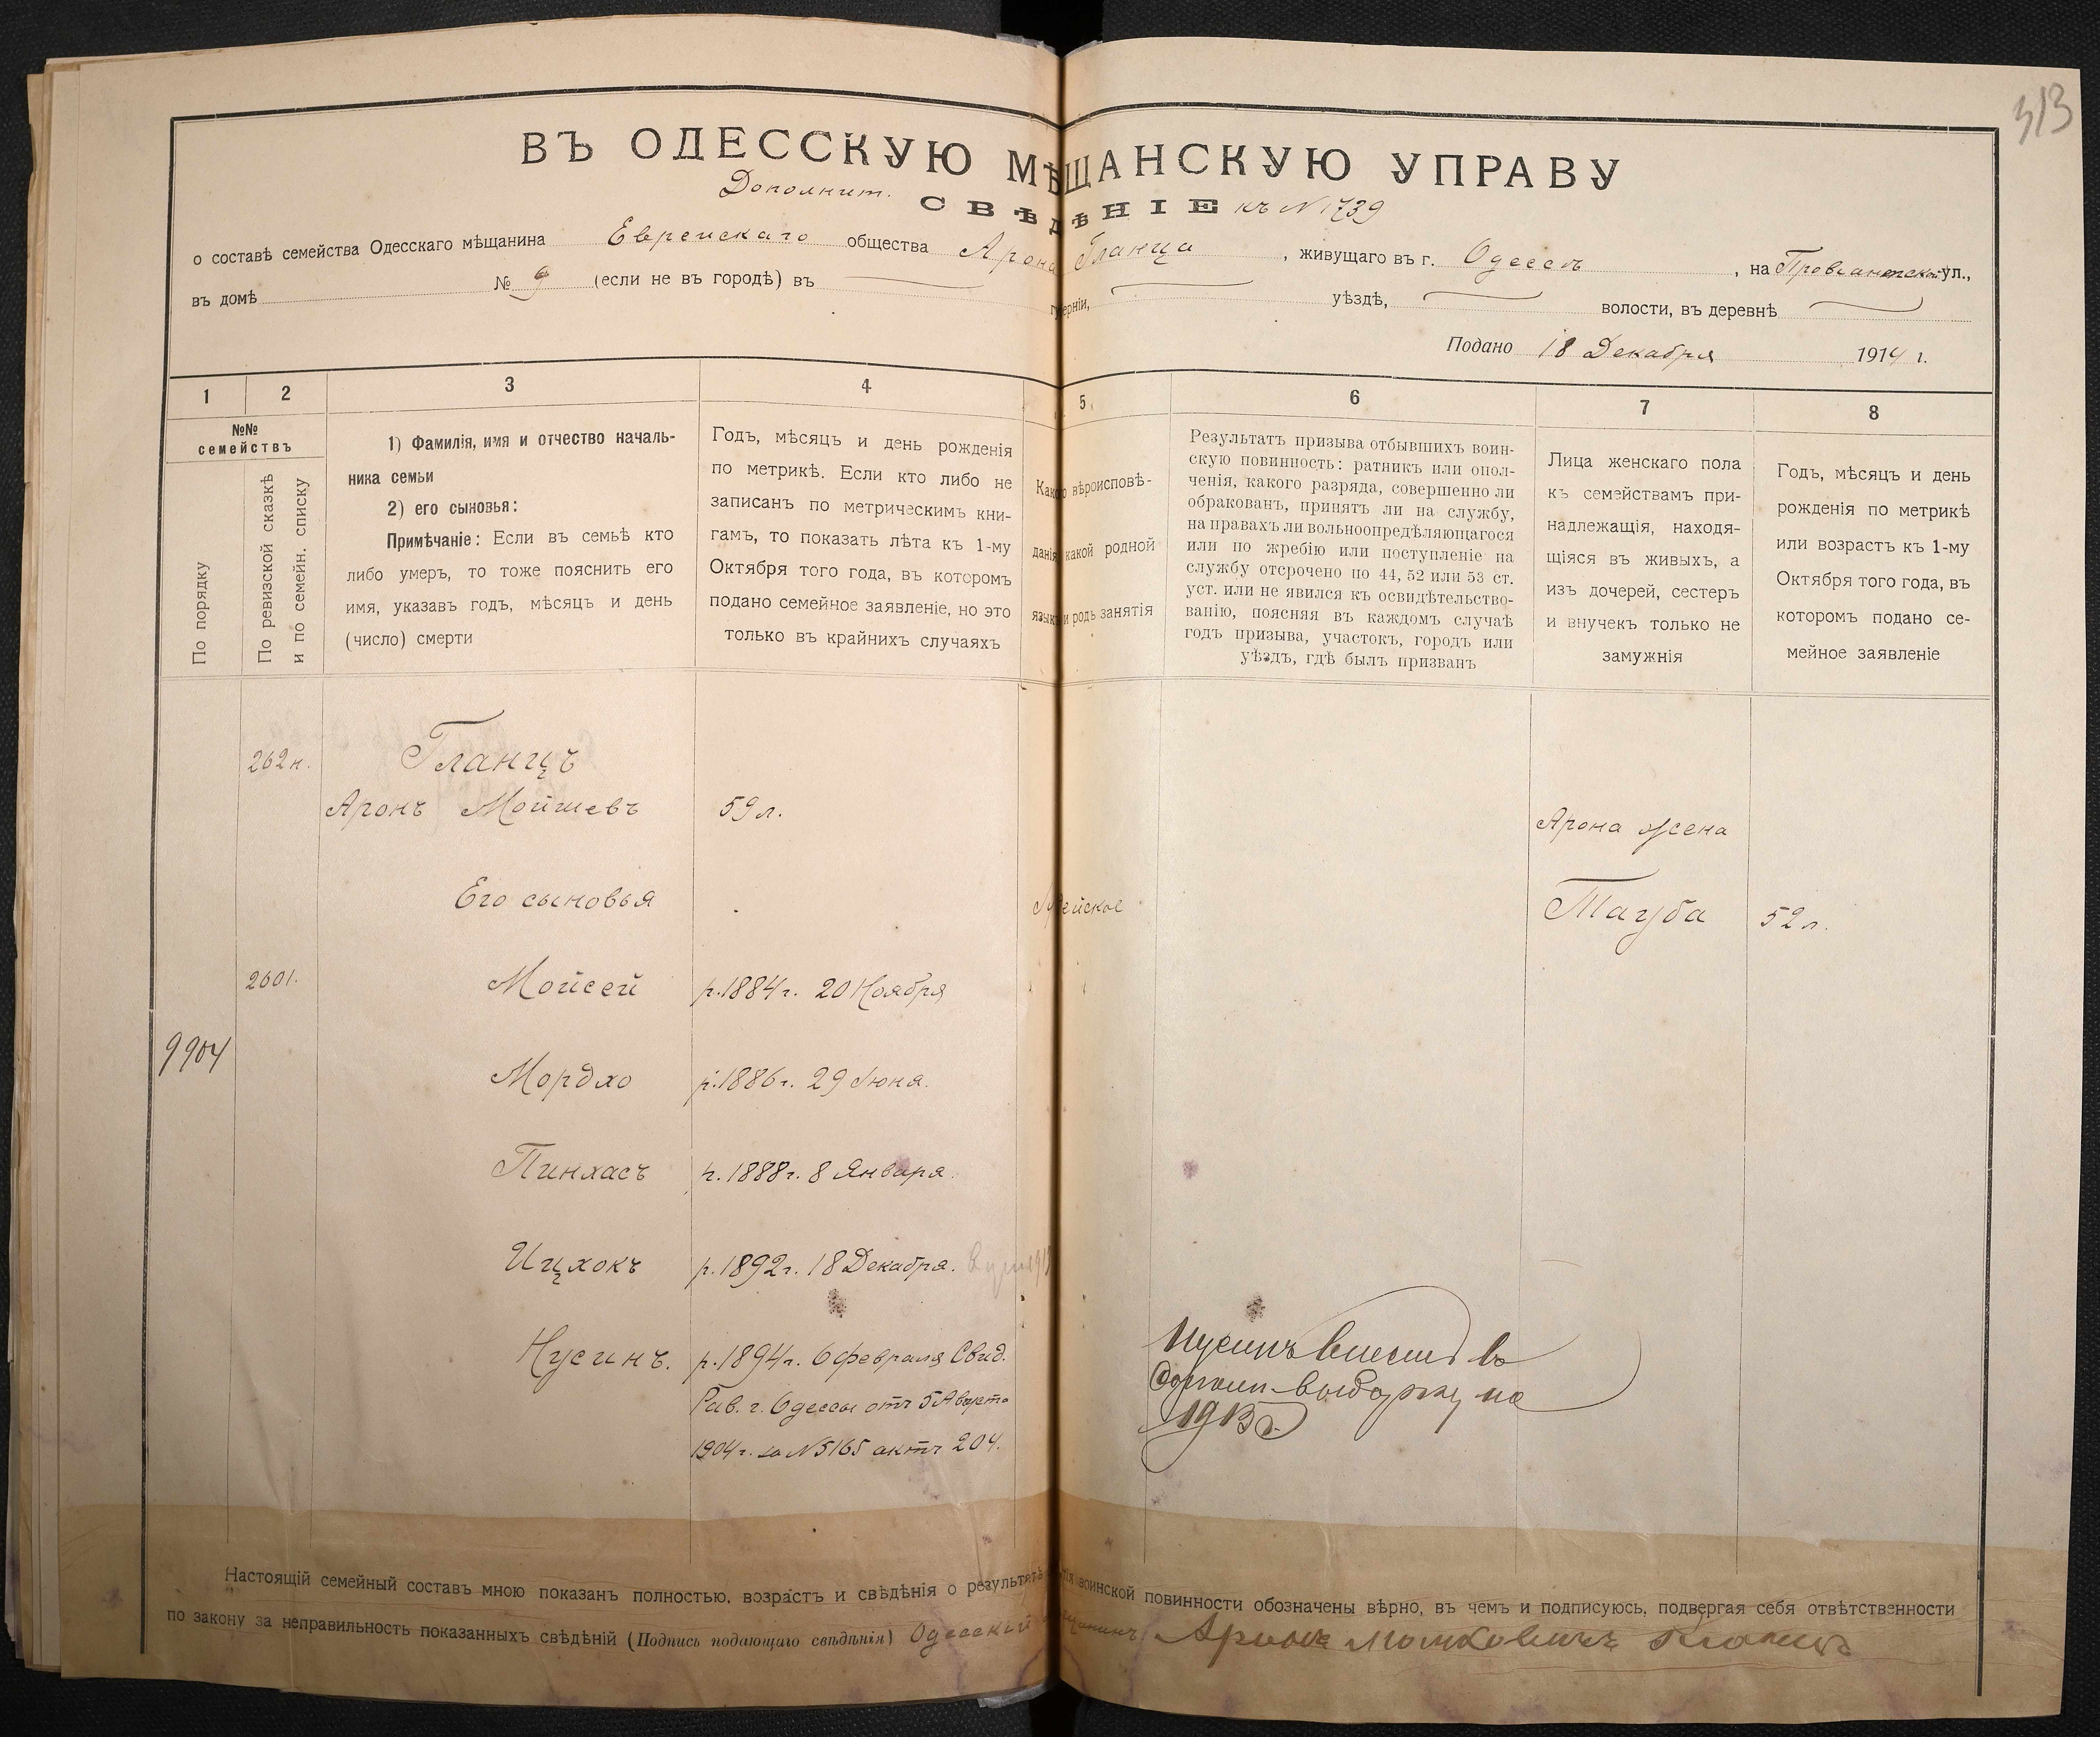 313
ВЪ ОДЕССКУЮ МѢЩАНСКУЮ УПРАВУ
Дополнит.
СВѢДѢНІЕ къ № 1739
о составѣ семейства Одесскаго мѣщанина Еврейскаго общества Арона Гланца, живущаго въ г. Одессѣ, на Провіантской ул.,
въ домѣ № 9 (если не въ городѣ) въ губерніи, уѣздѣ, волости, въ деревнѣ
Подано 18 Декабря 1914 г.
1 2 3 4 5 6 7 8
№№
семействъ
По порядку
По ревизской сказкѣ
и по семейн. списку
1) Фамилія, имя и отчество началь-
ника семьи
2) его сыновья:
Примѣчаніе: Если въ семьѣ кто
либо умеръ, то тоже пояснить его
имя, указавъ годъ, мѣсяцъ и день
(число) смерти
Годъ, мѣсяцъ и день рожденія
по метрикѣ. Если кто либо не
записанъ по метрическимъ кни-
гамъ, то показать лѣта къ 1-му
Октября того года, въ которомъ
подано семейное заявленіе, но это
только въ крайнихъ случаяхъ
Какого вѣроисповѣ-
данія какой родной
языкъ и родъ занятія
Результатъ призыва отбывшихъ воин-
скую повинность: ратникъ или опол-
ченія, какого разряда, совершенно ли
обракованъ, принятъ ли на службу,
на правахъ ли вольноопредѣляющагося
или по жребію или поступленіе на
службу отсрочено по 44, 52 или 53 ст.
уст. или не явился къ освидѣтельство-
ванію, поясняя въ каждомъ случаѣ
годъ призыва, участокъ, городъ или
уѣздъ, гдѣ былъ призванъ
Лица женскаго пола
къ семействамъ при-
надлежащія, находя-
щіяся въ живыхъ, а
изъ дочерей, сестеръ
и внучекъ только не
замужнія
Годъ, мѣсяцъ и день
рожденія по метрикѣ
или возрастъ къ 1-му
Октября того года, въ
которомъ подано се-
мейное заявленіе
262н. Гланцъ
Аронъ Мойшевъ 59 л. Арона жена
Его сыновья Іудейское Тауба 52 л.
2601. Мойсей р. 1884 г. 20 Ноября
9904
Мордхо р. 1886 г. 29 Іюня.
Пинхасъ р. 1888 г. 8 Января.
Ицхокъ р. 1892 г. 18 Декабря.
Нусинъ. р. 1894 г. 6 февраля Свид.
Рав. г. Одессы отъ 5 Августа
1904 г. за № 5165 актъ 204.
Нусинъ внесенъ въ
дополн. выборку на
1915 г.
Настоящій семейный составъ мною показанъ полностью, возрастъ и свѣдѣнія о результатѣ воинской повинности обозначены вѣрно, въ чемъ и подписуюсь, подвергая себя отвѣтственности
по закону за неправильность показанныхъ свѣдѣній (Подпись подающаго свѣдѣнія) Одесскій мѣщанинъ Аронъ Мошковичъ Гланцъ